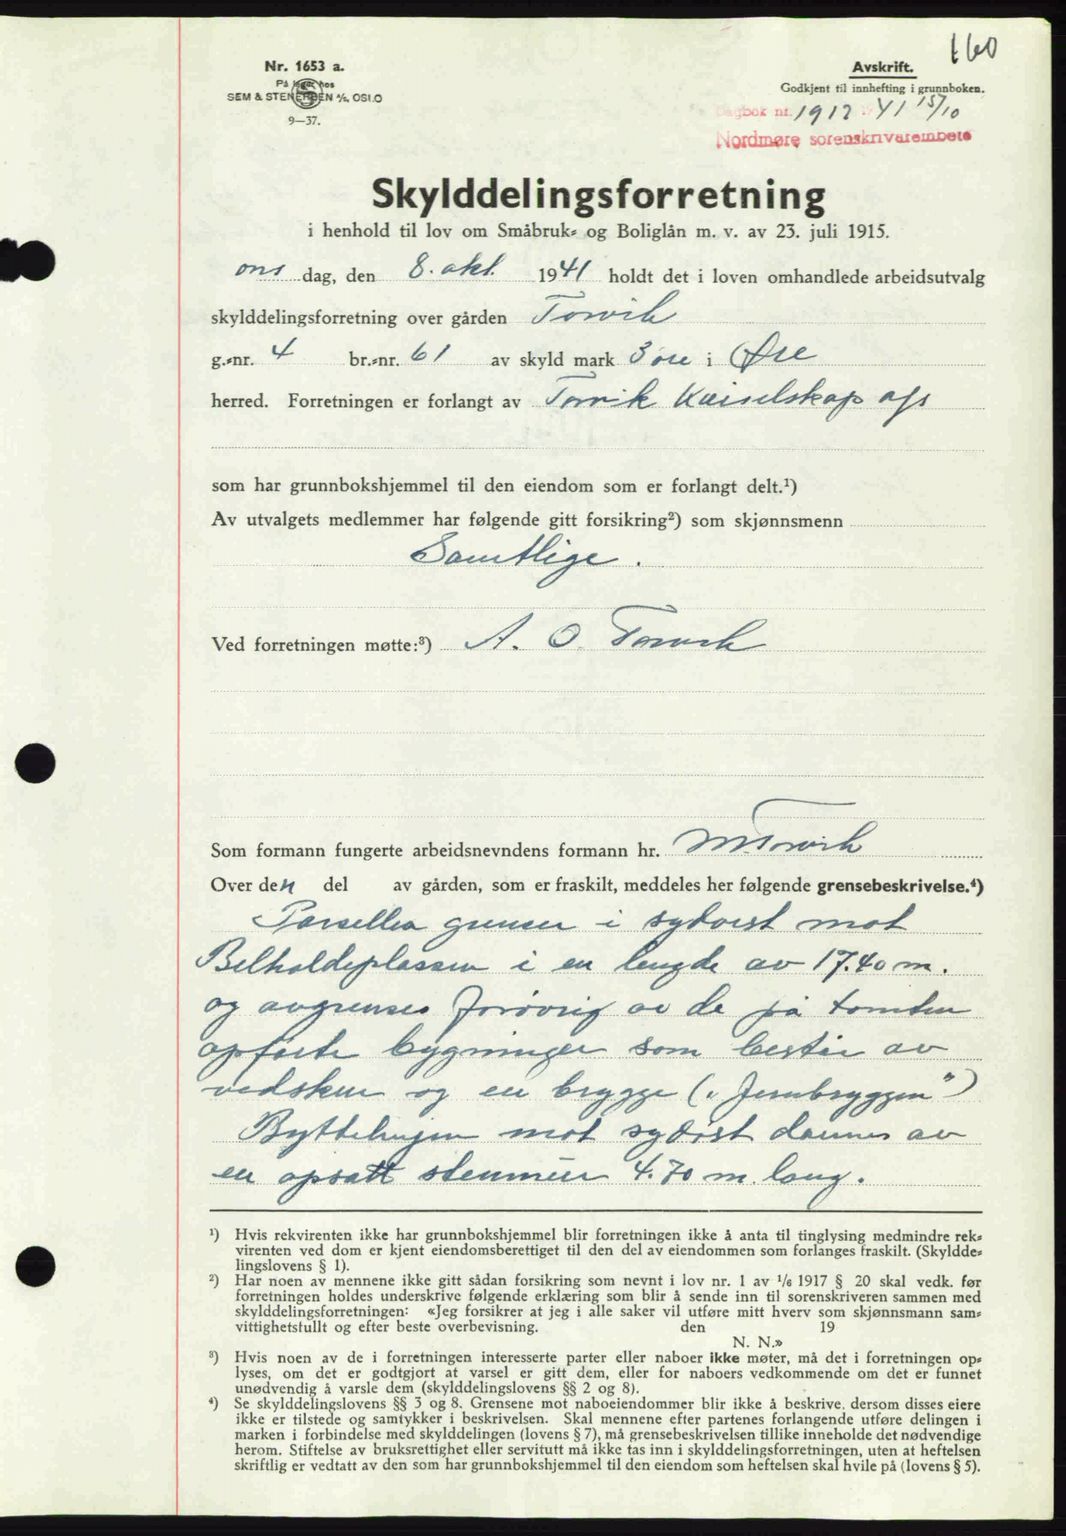 160
Nr. 1653 a.
På lager hos
SEM & STENERSEN A/S, OSLO
9—37.
Avskrift.
Godkjent til innhefting i grunnboken.
Dagbok nr. 1912 1941 15/10
Nordmøre sorenskrivarembete
Skylddelingsforretning
i henhold til lov om Småbruk- og Boliglån m. v. av 23. juli 1915.
ons dag, den 8. okt. 1941 holdt det i loven omhandlede arbeidsutvalg
skylddelingsforretning over gården Torvik
g.-nr. 4 br.-nr. 61 av skyld mark 3 øre i Øre
herred. Forretningen er forlangt av Torvik Kaiselskap a/s
som har grunnbokshjemmel til den eiendom som er forlangt delt.¹)
Av utvalgets medlemmer har følgende gitt forsikring²) som skjønnsmenn
Samtlige.
Ved forretningen møtte:³) A. O. Torvik
Som formann fungerte arbeidsnevndens formann hr. M. Torvik
Over den del av gården, som er fraskilt, meddeles her følgende grensebeskrivelse.⁴)
Parsellen grenser i sydvest mot
i en lengde av 17.40 m.
og avgrenses forøvrig av de på tomten
opførte bygninger som består av
vedskur og en brygge („Jernbryggen")
mot sydøst dannes av
en opsatt stenmur 4.70 m. lang.
¹) Hvis rekvirenten ikke har grunnbokshjemmel blir forretningen ikke å anta til tinglysing medmindre rek-
virenten ved dom er kjent eiendomsberettiget til den del av eiendommen som forlanges fraskilt. (Skyldde-
lingslovens § 1).
²) Har noen av mennene ikke gitt sådan forsikring som nevnt i lov nr. 1 av 1/6 1917 § 20 skal vedk. før
forretningen holdes underskrive følgende erklæring som blir å sende inn til sorenskriveren sammen med
skylddelingsforretningen: «Jeg forsikrer at jeg i alle saker vil utføre mitt hverv som skjønnsmann sam-
vittighetsfullt og efter beste overbevisning. den 19
N. N.»
³) Hvis noen av de i forretningen interesserte parter eller naboer ikke møter, må det i forretningen op-
lyses, om det er godtgjort at varsel er gitt dem, eller for naboers vedkommende om det er funnet
unødvendig å varsle dem (skylddelingslovens §§ 2 og 8).
⁴) Se skylddelingslovens §§ 3 og 8. Grensene mot naboeiendommer blir ikke å beskrive, dersom disses eiere
ikke er tilstede og samtykker i beskrivelsen. Skal mennene efter partenes forlangende utføre delingen i
marken i forbindelse med skylddelingen (lovens § 7), må grensebeskrivelsen tillike inneholde det nødvendige
herom. Stiftelse av bruksrettighet eller servitutt må ikke tas inn i skylddelingsforretningen, uten at heftelsen
skriftlig er vedtatt av den som har grunnbokshjemmel til den eiendom som heftelsen skal hvile på (lovens § 5).